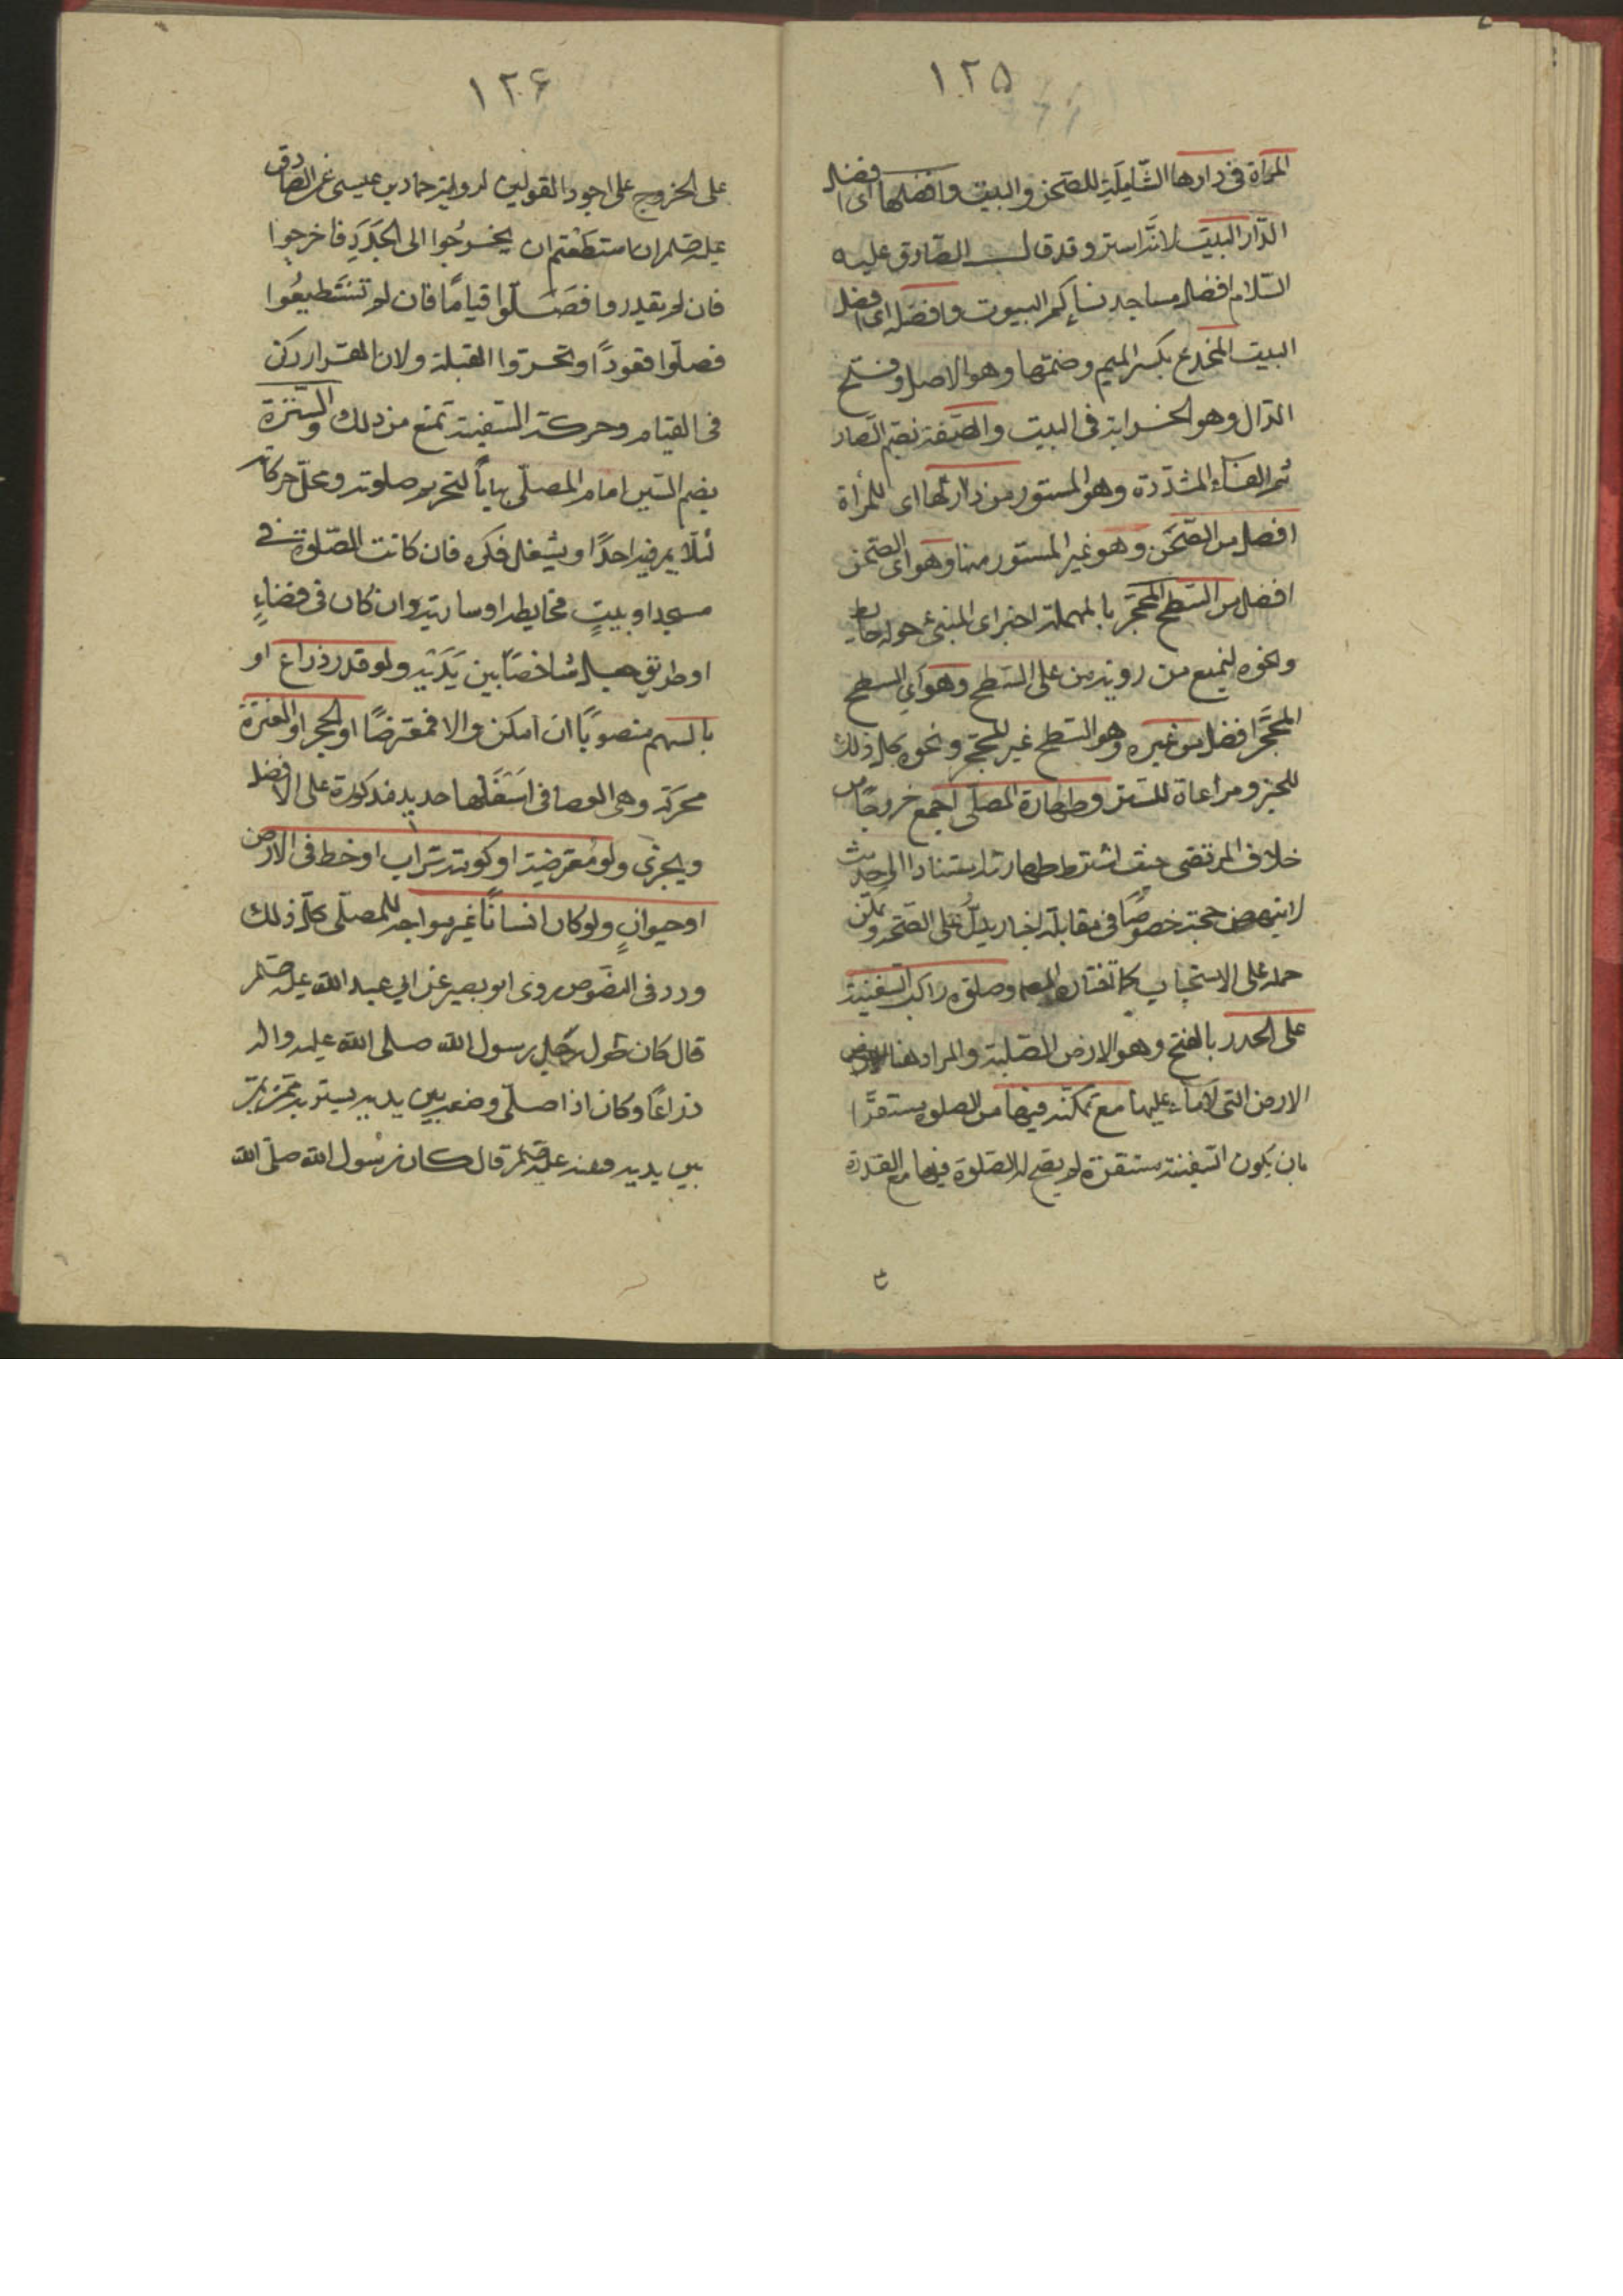 ١٢٥
المرأة في دارها الشاملة للصحن والبيت وافضلها اى افضل
الدار البيت لانه استر وقد قال الصادق عليه
السلام افضل مساجد نسائكم البيوت وافضله اى افضل
البيت المخدع بكسر الميم وضمها وهو الاصل وفتح
الدال وهو الخزانة في البيت والصفة بضم الصاد
ثم الفاء المشددة وهو المستور من دارها اى للمرأة
افضل من الصحن وهو غير المستور منها وهو اى الصحن
افضل من السطح المحجر بالمهملة اخيرا اى المبنى حوله حايط
ونحوه ليمنع من رويته من على السطح وهو اى السطح
المحجر افضل من غيره وهو السطح غير المحجر ونحوه كل ذلك
للخبر ومراعاة للستر وطهارة المصلى اجمع خروجا من
خلاف المرتضى حيث اشترط طهارته استنادا الى حديث
لا ينهض حجة خصوصا في مقابلة اخبار يدل على الصحة ويمكن
حمله على الاستحباب كما تفتاه المص وصلوة راكب السفينة
على الجدد بالفتح وهو الارض الصلبة والمراد هنا
الارض التى لا ماء عليها مع تمكنه فيها من الصلوة مستقرا
بان يكون السفينة مستقرة لم يصح له الصلوة فيها مع القدرة
١٢۶
على الخروج على اجود القولين لرواية حماد بن عيسى عن الصادق
عليه السلم ان استطعتم ان يخرجوا الى الجدد فاخرجوا
فان لم يقدروا فصلوا قياما فان لم تستطيعوا
فصلوا قعودا وتحروا القبلة ولان القرار ركن
في القيام وحركة السفينة تمنع من ذلك والسترة
بضم السين امام المصلى بيانا لتحريم صلوته ومحل حركاته
لئلا يمر فيه احدا ويشغل فكره فان كانت الصلوة في
مسجد او بيت فحايطه او سارية وان كان في فضاء
او طريق جعل شاخصا بين يديه ولو قدر ذراع او
بالسهم منصوبا ان امكن والا فمعترضا او الحجر او العنزة
محركة وهى العصا في اسفلها حديد مذكورة على الافضل
ويجزى ولو معترضة او كومة تراب او خط في الارض
او حيوان ولو كان انسانا غير مواجه للمصلى كل ذلك
ورد في النصوص روى ابو بصير عن ابي عبد الله عليه السلم
قال كان طول رحل رسول الله صلى الله عليه واله
ذراعا وكان اذا صلى وضعه بين يديه يستر به ممن يمر
بين يديه وعنه عليه السلم قال كان رسول الله صلى الله